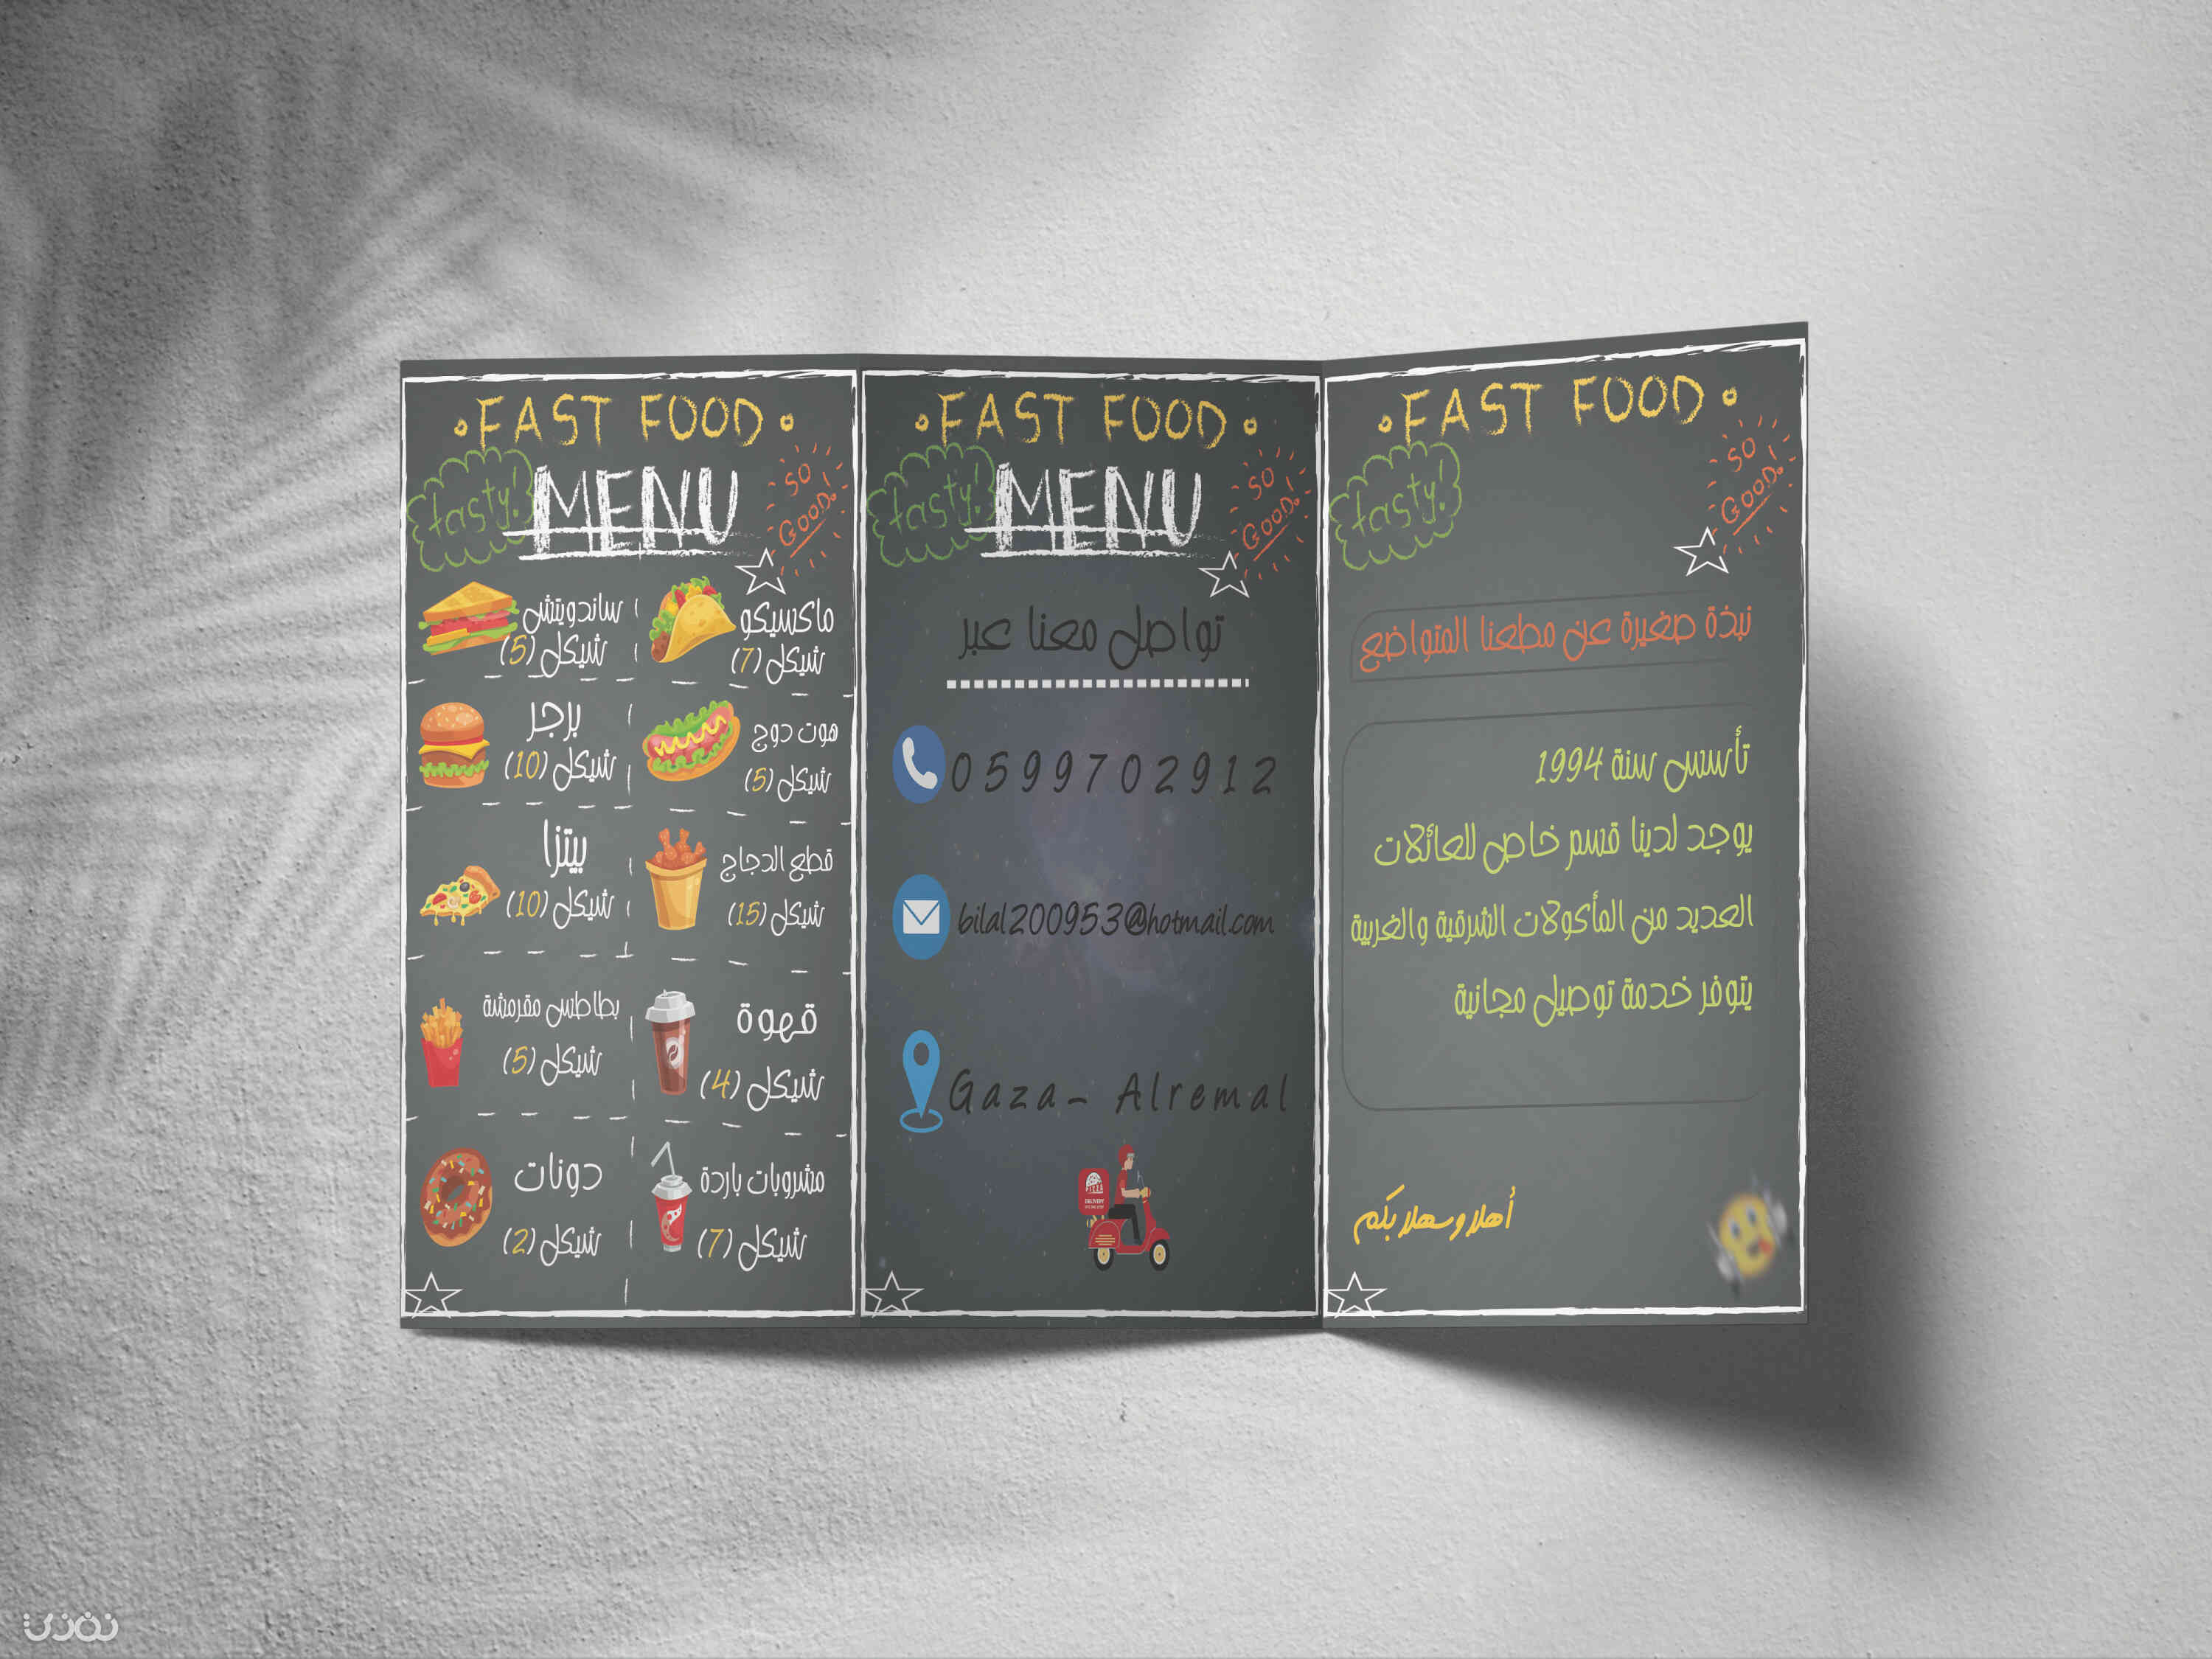 FAST FOOD
tasty!
MENU
SO GOOD!
ساندويتش
شيكل (5)
ماكسيكو
شيكل (7)
برجر
شيكل (10)
هوت دوج
شيكل (5)
بيتزا
شيكل (10)
قطع الدجاج
شيكل (15)
بطاطس مقرمشة
شيكل (5)
قهوة
شيكل (4)
دونات
شيكل (2)
مشروبات باردة
شيكل (7)
FAST FOOD
tasty!
MENU
SO GOOD!
تواصل معنا عبر
0599702912
bilal200953@hotmail.com
Gaza- Alremal
PIZZA
DELIVERY
FAST FOOD
tasty!
SO GOOD!
نبذة صغيرة عن مطعنا المتواضع
تأسس سنة 1994
يوجد لدينا قسم خاص للعائلات
العديد من المأكولات الشرقية والغربية
يتوفر خدمة توصيل مجانية
أهلا وسهلا بكم